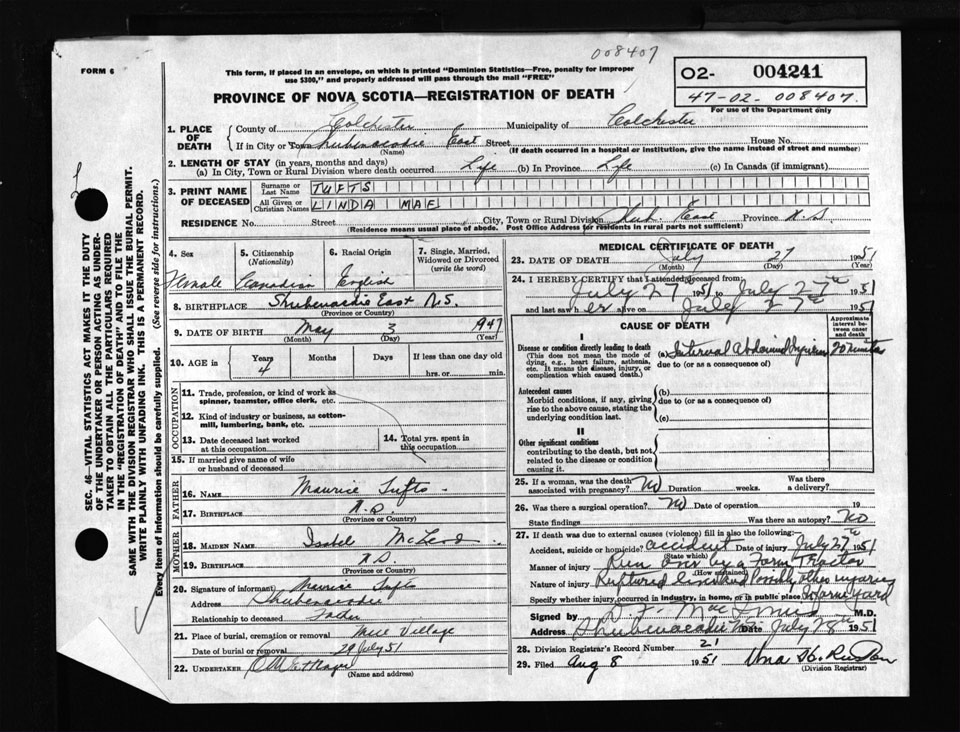 008407
FORM 6
This form, if placed in an envelope, on which is printed "Dominion Statistics—Free, penalty for improper
use $300," and properly addressed will pass through the mail "FREE"
O2- 004241
47-02-008407.
For use of the Department only
PROVINCE OF NOVA SCOTIA—REGISTRATION OF DEATH
SEC. 46—VITAL STATISTICS ACT MAKES IT THE DUTY
OF THE UNDERTAKER OR PERSON ACTING AS UNDER-
TAKER TO OBTAIN ALL THE PARTICULARS REQUIRED
IN THE "REGISTRATION OF DEATH" AND TO FILE THE
SAME WITH THE DIVISION REGISTRAR WHO SHALL ISSUE THE BURIAL PERMIT.
WRITE PLAINLY WITH UNFADING INK. THIS IS A PERMANENT RECORD.
Every item of information should be carefully supplied. (See reverse side for instructions.)
1. PLACE OF DEATH
County of Colchester Municipality of Colchester
If in City or Town Shubenacadie East Street House No.
(Name) (If death occurred in a hospital or institution, give the name instead of street and number)
2. LENGTH OF STAY (in years, months and days)
(a) In City, Town or Rural Division where death occurred Life (b) In Province Life (c) In Canada (if immigrant)
3. PRINT NAME OF DECEASED
Surname or Last Name TUFTS
All Given or Christian Names LINDA MAE
RESIDENCE No. Street City, Town or Rural Division Shub. East Province N.S.
(Residence means usual place of abode. Post Office Address for residents in rural parts not sufficient)
4. Sex 5. Citizenship (Nationality) 6. Racial Origin 7. Single, Married, Widowed or Divorced (write the word)
Female Canadian English
8. BIRTHPLACE Shubenacadie East N.S.
(Province or Country)
9. DATE OF BIRTH May 3 1947
(Month) (Day) (Year)
10. AGE in Years Months Days If less than one day old
4 hrs. or min.
OCCUPATION
11. Trade, profession, or kind of work as
spinner, teamster, office clerk, etc.
12. Kind of industry or business, as cotton-
mill, lumbering, bank, etc.
13. Date deceased last worked
at this occupation
14. Total yrs. spent in
this occupation
15. If married give name of wife
or husband of deceased
FATHER
16. NAME Maurice Tufts
17. BIRTHPLACE N.S.
(Province or Country)
MOTHER
18. MAIDEN NAME Isabel McLeod
19. BIRTHPLACE N.S.
(Province or Country)
20. Signature of informant Maurice Tufts
Address Shubenacadie
Relationship to deceased Father
21. Place of burial, cremation or removal Mill Village
Date of burial or removal 29 July 51
22. UNDERTAKER
(Name and address)
MEDICAL CERTIFICATE OF DEATH
23. DATE OF DEATH July 27 1951
(Month) (Day) (Year)
24. I HEREBY CERTIFY that I attended deceased from:
July 27 1951 to July 27th 1951
and last saw her alive on July 27th 1951
CAUSE OF DEATH
Approximate interval between onset and death
I
Disease or condition directly leading to death
(This does not mean the mode of
dying, e.g., heart failure, asthenia,
etc. It means the disease, injury, or
complication which caused death.)
(a) Internal Abdominal Injuries 20 minutes
due to (or as a consequence of)
Antecedent causes
Morbid conditions, if any, giving
rise to the above cause, stating the
underlying condition last.
(b)
due to (or as a consequence of)
(c)
II
Other significant conditions
contributing to the death, but not
related to the disease or condition
causing it.
25. If a woman, was the death
associated with pregnancy? No Duration weeks. Was there
a delivery?
26. Was there a surgical operation? No Date of operation 19
State findings Was there an autopsy? No
27. If death was due to external causes (violence) fill in also the following:—
Accident, suicide or homicide? accident Date of injury July 27th 1951
(State which)
Manner of injury Run over by a Farm Tractor
(How sustained)
Nature of injury Ruptured liver and Possibly other injuries
Specify whether injury occurred in industry, in home, or in public place Farm yard
Signed by D. F. MacInnis M.D.
Address Shubenacadie N.S. Date July 28th 1951
28. Division Registrar's Record Number 21
29. Filed Aug 8 1951
(Division Registrar)